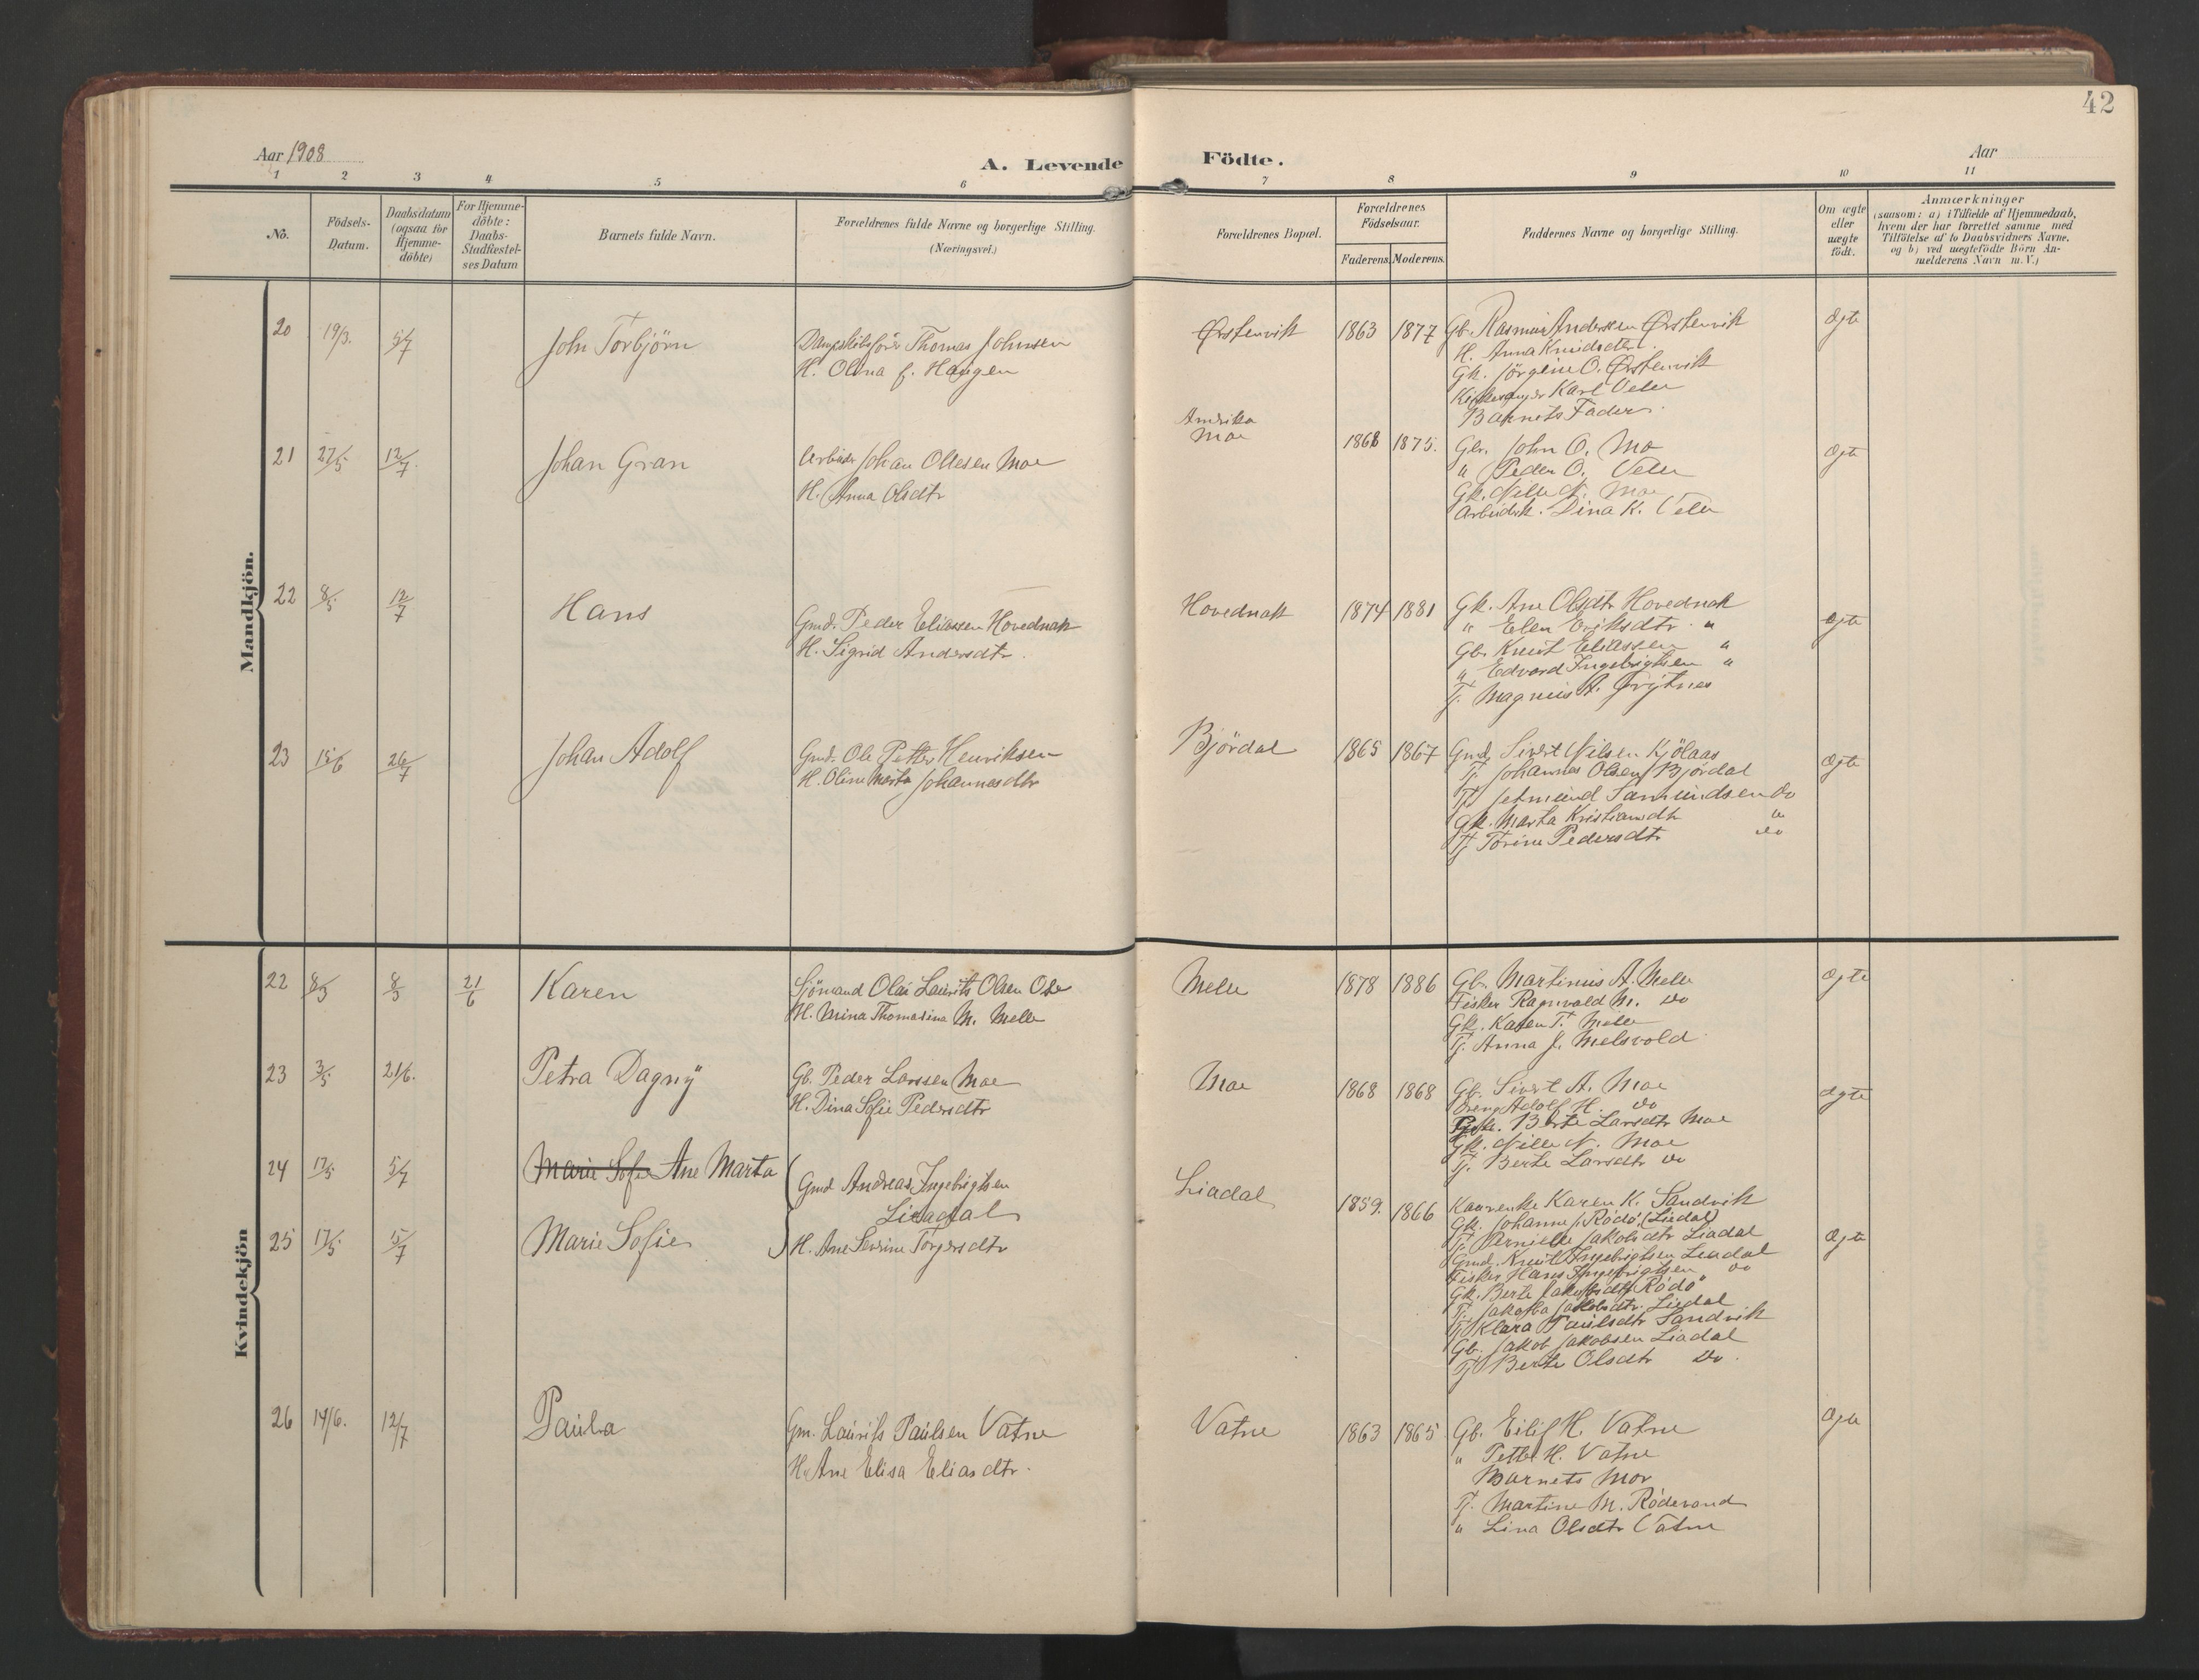 42
Aar 1908
A. Levende Födte.
Aar
1 2 3 4 5 6 7 8 9 10 11
No.
Födsels-Datum.
Daabsdatum (ogsaa for Hjemme-döbte)
For Hjemme-döbte: Daabs-Stadfæstel-ses Datum
Barnets fulde Navn.
Forældrenes fulde Navne og borgerlige Stilling.
(Næringsvei.)
Forældrenes Bopæl.
Forældrenes Födselsaar.
Faderens. Moderens.
Faddernes Navne og borgerlige Stilling.
Om ægte eller uægte födt.
Anmærkninger
(saasom: a) i Tilfælde af Hjemmedaab,
hvem der har forrettet samme med
Tilföielse af to Daabsvidners Navne,
og b) ved uægtefödte Börn An-
melderens Navn m. V.)
Mandkjön.
20 19/3. 5/7 John Torbjörn
Dampskibsförer Thomas Johnsen
H. Olina f. Haugen
Ørstenvik 1863 1877
Gb. Rasmus Anderssen Ørstenvik
H. Anna Knudsdtr.
Gk. Jörgine O. Ørstenvik
Kirkesanger Karl Velle
Barnets Fader.
Ægte
21 27/5 12/7. Johan Gran
Arbeider Johan Ollesen Moe
H. Anna Olsdtr
Amerika
Moe
1868 1875.
Gbr. John O. Mo
" Peder O. Velle
Gk. Nille N. Moe
Arbeidsk. Dina K. Velle
Ægte
22 8/5 12/7 Hans
Gmd. Peder Eliassen Hovednak
H. Sigrid Andersdtr.
Hovednak 1874 1881
Gk. Ane Olsdtr Hovednak
" Elen Eriksdtr. "
Gb. Knut Eliassen "
" Edvard Ingebrigtsen "
Tj. Magnus A.
Ægte
23 15/6 26/7 Johan Adolf
Gmd. Ole Petter Henriksen
H. Oline Marta Johannesdtr
Björdal 1865 1867
Gmd. Sivert Nilsen Kjölaas
Tj. Johannes Olsen Björdal
Tj. Jetmund Samundsen do
Gk. Marta Kristiansdtr "
Tj. Torine Pedersdtr do
Ægte
Kvindekjön
22 8/3 8/3 21/6 Karen
Sjömand Olai Laurits Olsen Ose
H. Mina Thomasina M. Melle
Melle 1878 1886
Gb. Martinus A. Melle
Fisker Ragnvald M. do
Gk. Karen T. Melle
Tj. Anna J. Melsvold
Ægte
23 3/5 21/6. Petra Dagny
Gb. Peder Larssen Moe
H. Dina Sofie Pedersdtr
Moe 1868 1868
Gb. Sivert A. Moe
Dreng Adolf H. do
Berte Larsdtr Moe
Gk. Nille N. Moe
Tj. Berte Larsdtr do
Ægte
24 17/5 5/7 Marie Sofie Ane Marta
Gmd. Andreas Ingebrigtsen
Liadal
25 17/5 5/7 Marie Sofie
H. Ane Severine Torgersdtr
Liadal 1859. 1866
Kaarenke Karen K. Sandvik
Gk. Johanne J. Rödö (Liadal)
Tj. Pernille Jakobsdtr Liadal
Gmd. Knut Ingebrigtsen Liadal
Fisker Hans Ingebrigtsen do
Gk. Berte Jakobsdtr Rödö
Tj. Jakobba Jakobsdtr. Liadal
Tj. Klara Paulsdtr Sandvik
Gb. Jakob Jakobsen Liadal
Tj. Berte Olsdtr do.
Ægte
26 14/6. 12/7 Paula
Gm. Laurits Paulsen Vatne
H. Ane Elisa Eliasdtr.
Vatne 1863 1865
Gb. Eilif H. Vatne
" Petter H. Vatne
Barnets Mor
Tj. Martine M. Rödesand
" Lina Olsdtr Vatne
Ægte